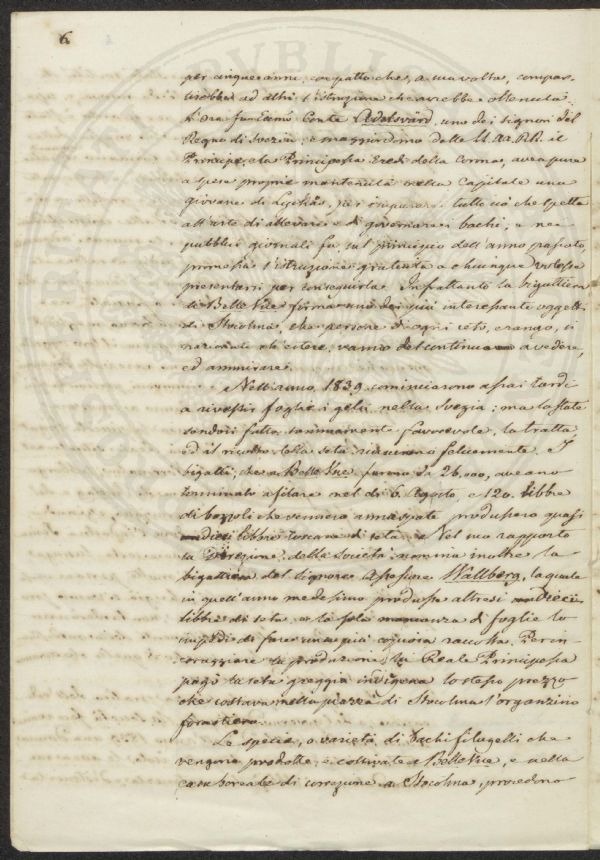 6
per cinque anni, con patto che, a sua volta, compar-
tirebbe ad altri l'istruzione che avrebbe ottenuta.
Conte Adelsvärd, uno dei signori del
Regno di Svezia, e maggiordomo delle LL. AA. RR. il
Principe, e la Principessa Eredi della Corona, avea pure
a spese proprie mantenuta nella Capitale una
giovane di per imparare tutto ciò che spetta
all'arte di allevare e di governare i bachi, e ne
pubblici giornali fu sul principio dell'anno passato,
promessa l'istruzione gratuita a chiunque volesse
presentarsi per conseguirla. Infattanto la bigattiera
di Belle Vue forma uno dei più interessanti oggetti
di Stocolma, che persone di ogni ceto, e rango, si
nazionali che estere, vanno del continuo a vedere,
ed ammirare.
Nell'anno 1839 cominciarono assai tardi
a i gelsi nella Svezia; ma la state
sendosi fatta sommamente favorevole, la tratta
ed il ricolto della seta, riuscirono felicemente. I
bigatti, che a Belle Vue furono da 26,000, aveano
terminato a filare nel dì 6. Agosto, e 120. libbre
di bozzoli che vennero annaspate produssero quasi
dieci libbre toscane di seta. Nel suo rapporto
la Direzione della Società nomina inoltre la
bigattiera del Signore Assessore Wallberg, la quale
in quell'anno medesimo produsse altresì Dieci
libbre di seta, e la sola mancanza di foglie lo
impedì di fare una più copiosa raccolta. Per in-
coraggiare la produzione, la Reale Principessa
pagò la seta greggia indigena lo stesso prezzo
che costava nella piazza di Stocolma l'organzino
forastiero.
Le specie, o varietà di bachi filugelli che
vengono prodotte, e coltivate a Belle Vue, e nella
casa boreale di correzione a Stocolma, procedono